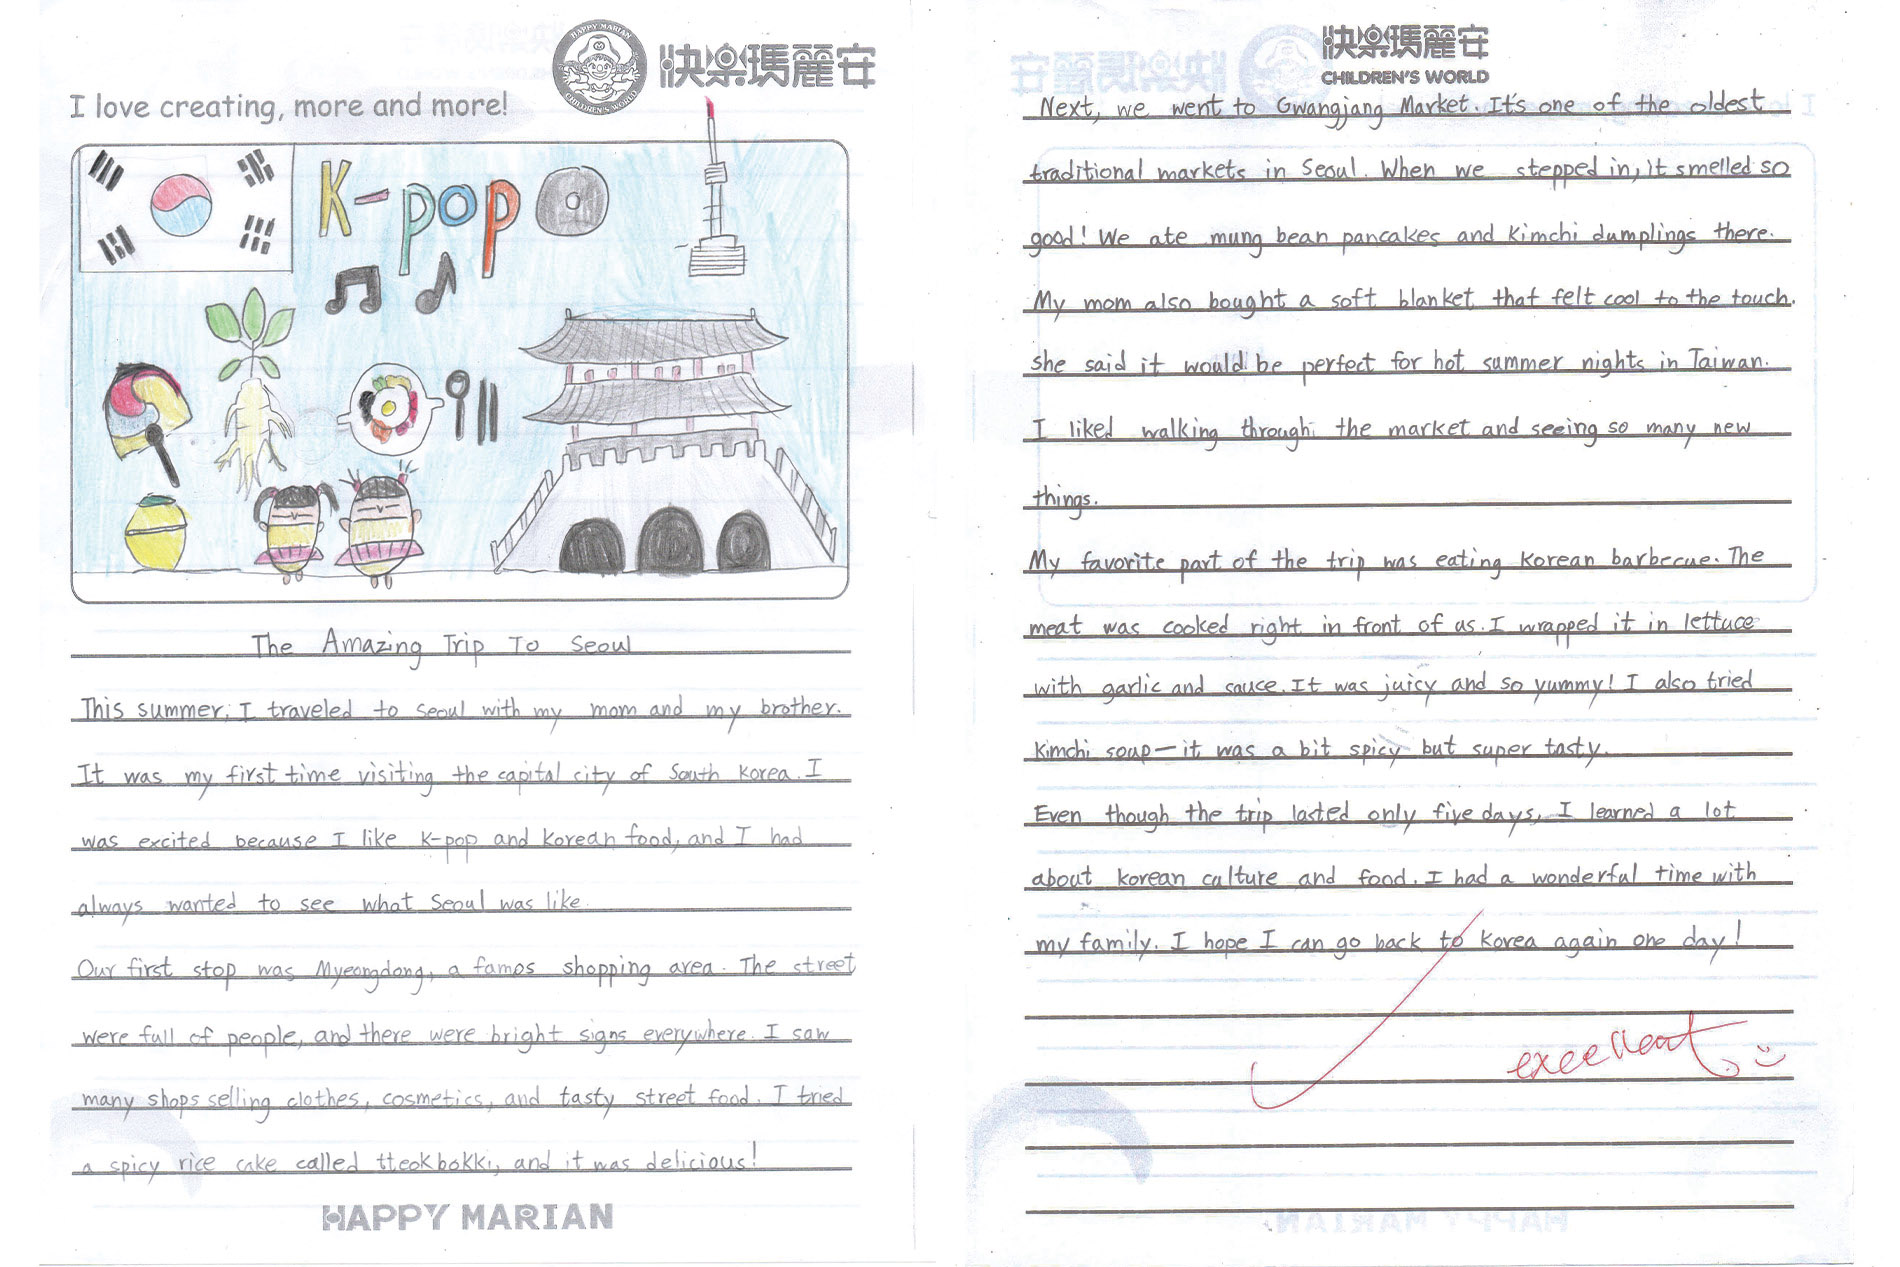 HAPPY MARIAN
CHILDREN'S WORLD
快樂瑪麗安
I love creating, more and more!
K-pop
The Amazing Trip To Seoul
This summer, I traveled to seoul with my mom and my brother.
It was my first time visiting the capital city of South Korea. I
was excited because I like K-pop and korean food, and I had
always wanted to see what Seoul was like.
Our first stop was Myeongdong, a famos shopping area. The street
were full of people, and there were bright signs everywhere. I saw
many shops selling clothes, cosmetics, and tasty street food. I tried
a spicy rice cake called tteokbokki, and it was delicious!
HAPPY MARIAN
快樂瑪麗安
CHILDREN'S WORLD
Next, we went to Gwangjang Market. It's one of the oldest
traditional markets in Seoul. When we stepped in, it smelled so
good! We ate mung bean pancakes and kimchi dumplings there.
My mom also bought a soft blanket that felt cool to the touch.
she said it would be perfect for hot summer nights in Taiwan.
I liked walking through the market and seeing so many new
things.
My favorite part of the trip was eating korean barbecue. The
meat was cooked right in front of us. I wrapped it in lettuce
with garlic and sauce. It was juicy and so yummy! I also tried
kimchi soup—it was a bit spicy but super tasty.
Even though the trip lasted only five days, I learned a lot
about korean culture and food. I had a wonderful time with
my family. I hope I can go back to korea again one day!
excellent